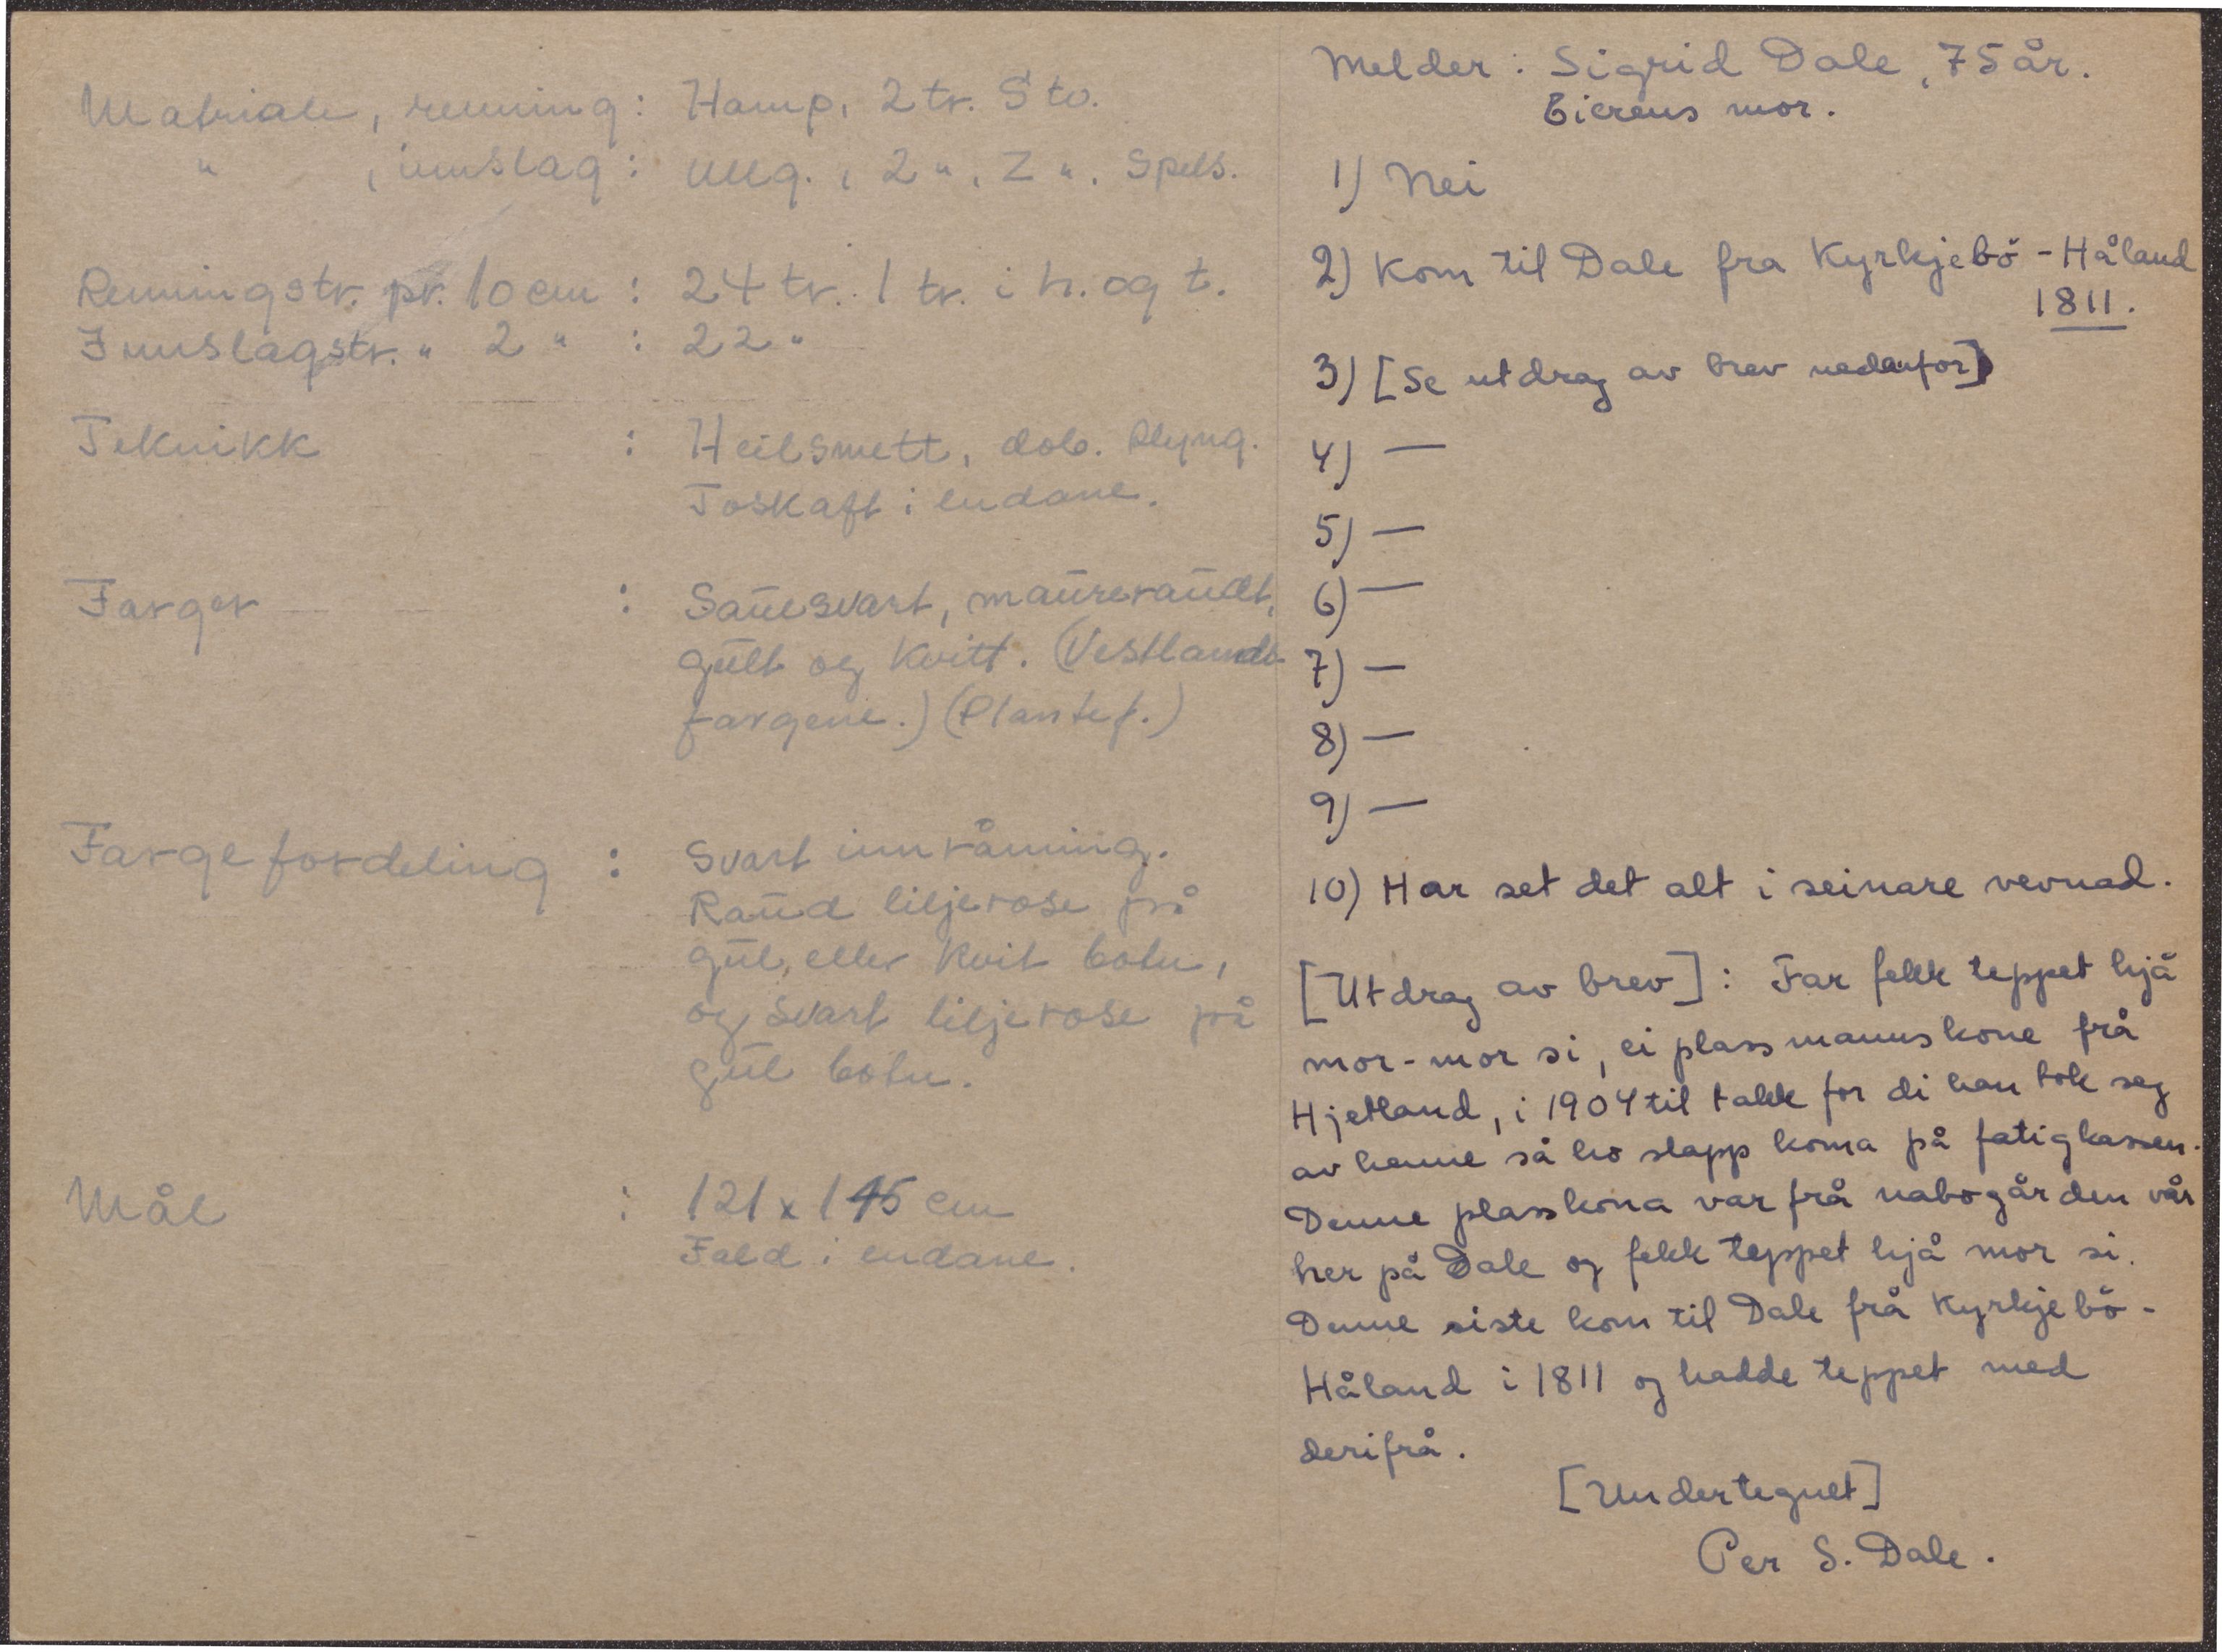 Matriale, renning: Hamp, 2 tr. S tv.
" , innslag: Ullg., 2 ", Z ". Spels.
Renningstr. pr. 10 cm : 24 tr. 1 tr. i h. og t.
Innslagstr. " 2 " : 22 "
Teknikk : Heilsmett, dob. slyng.
Toskaft i endane.
Farger : Sauesvart, maureraudt,
gult og kvitt. (Vestlands-
fargene.) (Plantef.)
Fargefordeling : Svart innråming.
Raud liljerose på
gul, eller kvit botn,
og svart liljerose på
gul botn.
Mål : 121 x 145 cm
Fald i endane.
Melder: Sigrid Dale, 75 år.
Eierens mor.
1) Nei
2) Kom til Dale fra Kyrkjebö - Håland
1811.
3) [Se utdrag av brev nedanfor]
4) —
5) —
6) —
7) —
8) —
9) —
10) Har set det alt i seinare vevnad.
[Utdrag av brev]: Far fekk teppet hjå
mor-mor si, ei plassmannskone frå
Hjetland, i 1904 til takk for di han tok seg
av henne så ho slapp koma på fatigkassen.
Denne plasskona var frå nabogården vår
her på Dale og fekk teppet hjå mor si.
Denne siste kom til Dale frå Kyrkjebö -
Håland i 1811 og hadde teppet med
derifrå.
[Undertegnet]
Per S. Dale.